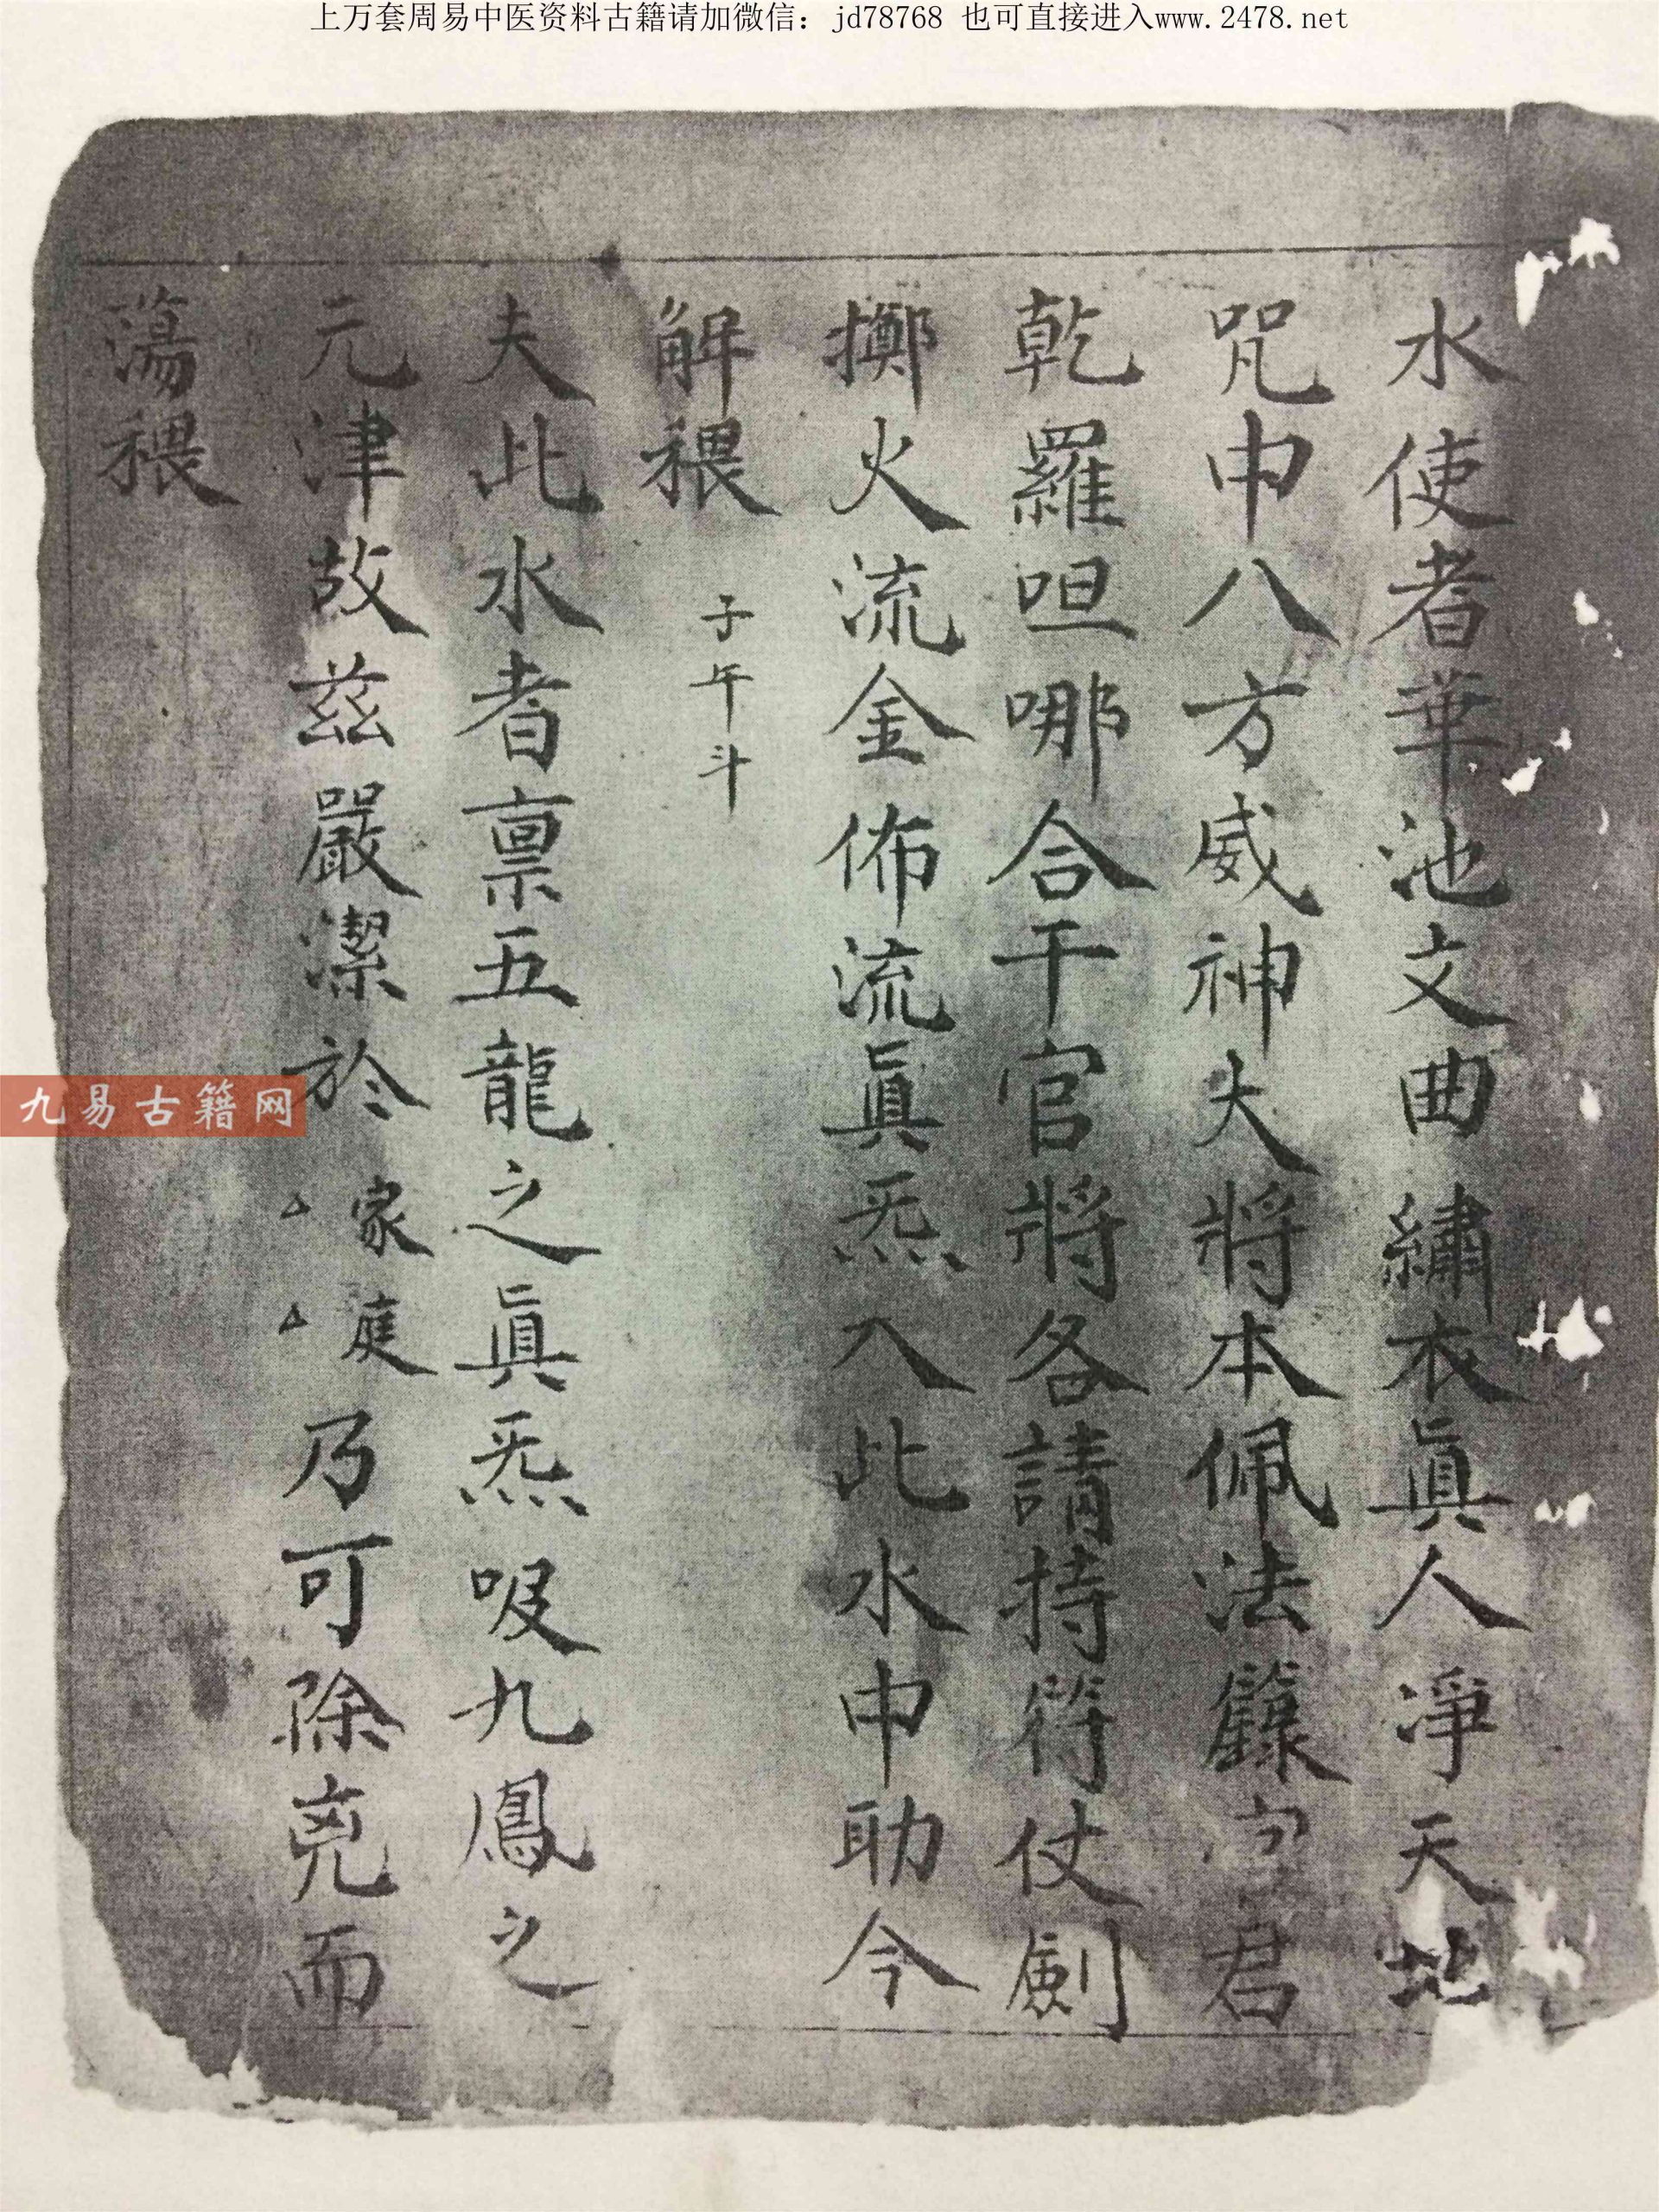 上万套周易中医资料古籍请加微信：jd78768 也可直接进入www.2478.net
水使者華池文曲繡衣眞人淨天地
咒中八方威神大將本佩法籙字君
乾羅呾哪合干官將各請持符仗劍
擲火流金佈流眞炁入此水中助今
解穢 子午斗
夫此水者禀五龍之眞炁吸九鳳之
元津故茲嚴潔於家庭乃可除兇而
蕩穢
九易古籍网